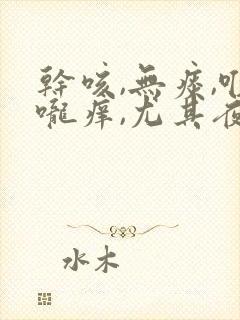 幹咳,無痰,
嚨癢,尤其夜
水木